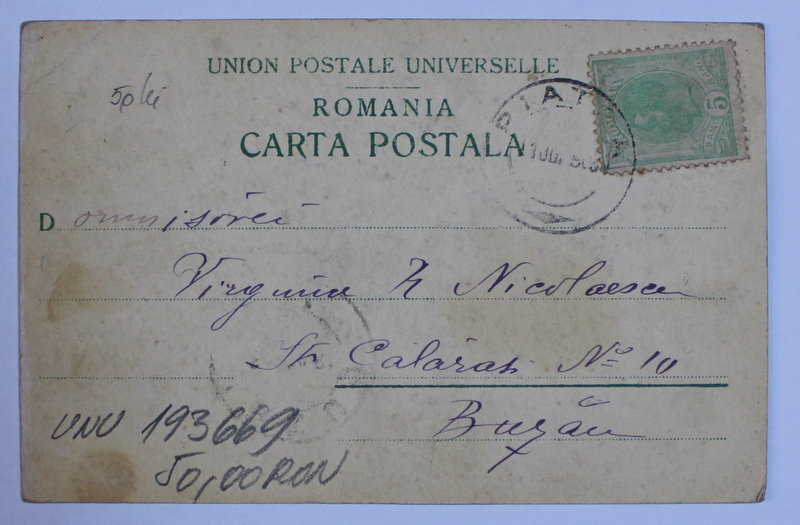 UNION POSTALE UNIVERSELLE
ROMANIA
CARTA POSTALA
5 BANI
PIAT
D omnișórei
Virginia N Nicolaescu
St. Calarasi No 10
Buzău
VNU 193669
50,00 RON